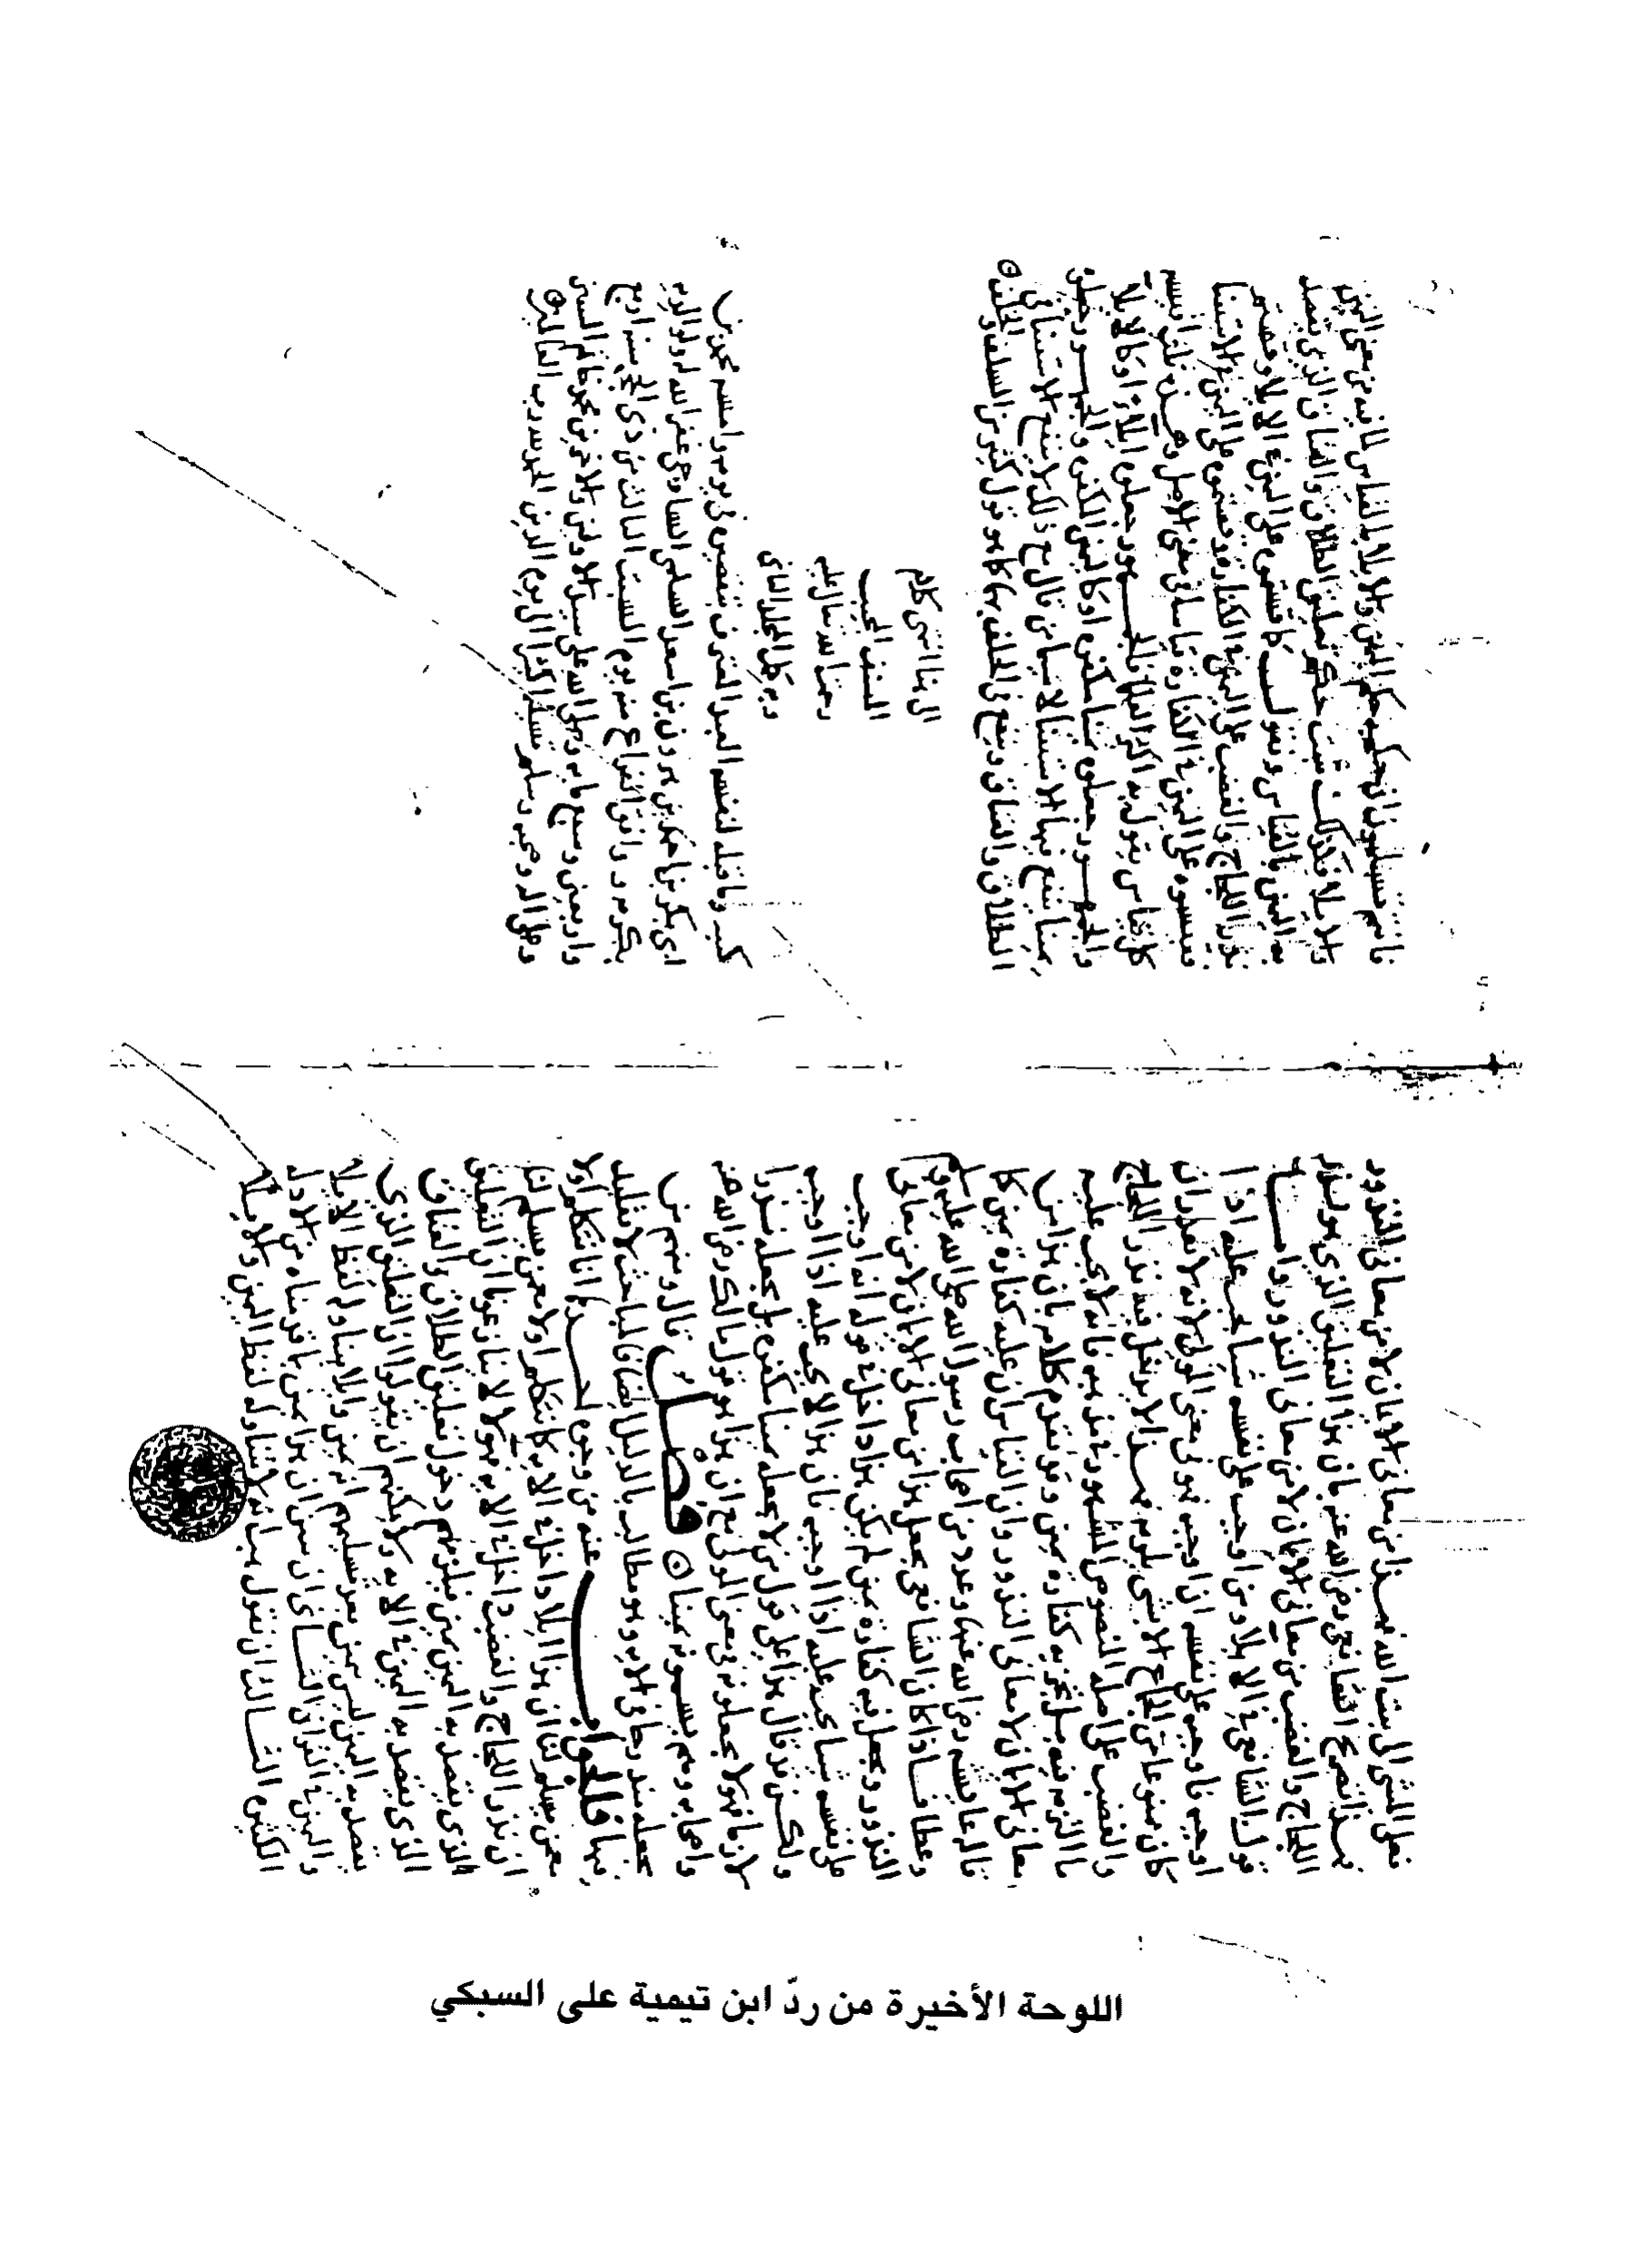 فعل المشي الى بيت الله فهذا من معاني الايمان لا من معاني النذور
فهذا نص من الشافعي رضي الله عنه بان هذا التعليق الذي هو نذر
اللجاج والغضب من معاني الايمان لا من معاني النذور واما
قول الشافعي في الايلا من اوجب على نفسه شيا يجب عليه اذا
اوجبه فاوجبه على نفسه ان اوجبه فهو في معنى المولي لانه لا يعدو ان
كان ممنوعا من الجماع الا بشي يلزمه فهذا لا يدخل فيه نذر اللجاج
والغضب على اصله المنصوص المشهور عنه فانه لا يجب عليه
ما التزمه فيه بل تجزيه كفارة يمين وقد تقدم كلامه بان هذا من
معاني الايمان لا معاني النذور وان القياس ان عليه كفارة يمين كما
قالت عايشة رضي الله عنها وعدد من اصحاب رسول الله صلى الله عليه وسلم
وعطا فاذا كان الشافعي يجعل هذا من معاني الايمان لا من معاني
النذور ويجعل فيه كفارة يمين لم يكن هذا داخلا في قوله اذا اوجب
على نفسه شيا يجب عليه اذا اوجبه فان هذا لا يجب عليه اذا اوجبه
ولكن قد قال هذا على قول من لا يجعله يمينا مكفرة بل يجعله نذرا
لازما فهولا يجعلونه في معنى المولي مع ان هذا هو قول مالك رضي الله عنه
واصحابه وهم يسمونه يمينا ⊙ فصل قال ومنهم من
يجعله الايه وهو مطالب بالدليل ايضا لا تقليد
فيها فالجواب عنه من وجوه احدها انا نتكلم اولا
مع من يسلم لنا ان هذا ايلا داخل في الايه كما نتكلم اولا مع من يسلم لنا
ان نذر اللجاج والغضب داخل في الايه فهولا لا ينازعونا ان التعليق
الذي يقصد به اليمين يمين فيلزمهم دخول تعليق الطلاق والعتاق
الذي يقصد به اليمين في الايه ولا يمكنهم ان يقولوا ان التعليق الذي
يقصد به اليمين ليس يمين بعد تسليمهم انه يمين والايلا لفظ الايلا
واليمين في القران الثاني ان نبين ان هذا يمين بما قدمناه من الادلة
الكثيره الثالث ان نقول هب انه لا يتناوله لفظ اليمين والايلا
فانهم يسلمون ان حكمه حكم اليمين والايلا بالقياس لما فيه من معنى اليمين
والايلا فكذلك يثبت حكم تعليق الطلاق والعتاق الذي يقصد
به اليمين بالقياس ونقول كما قستم على اليمين في الايلا وقستم
نذر اللجاج والغضب على اليمين في الكفارة وقستموه على اليمين في الاستثنا
فقيسوه على اليمين في الكفارة فانها في معنى الاصل وهذه ثلاث اقيسة
كل قياس يقول به اكثر العلما فالجمهور يجعلون ايلا او كالايلا
والجمهور يجعلون يمينا مكفرة او كاليمين المكفرة والجمهور يجعلونه
يمينا ينفع فيها الاستثنا لا سيما من قال مع ذلك لا ينفع الاستثنا في
الطلاق والعتاق وينفع في الحلف بهما كما هو قول كثير من السلف والخلف ⊙
الى هنا انتهى كلام
المصنف المجيب
رحمة الله تعالى عليه
وبه كمل المجلد الثاني
كتبه وما قبله لنفسه العبد المعترف بتقصيره في يومه وامسه محمد بن
ابي بكر بن احمد بن اسعد السلمي الشافعي غفر الله له ولوالديه
بكرمه ووافق الفراغ منه يوم السبت الثالث من ذي الحجه سنه اربع
واربعين وسبع مايه وصلى الله على سيد الاولين والاخرين محمد خاتم النبيين
وعلى اله وصحبه وسلم تسليما كثيرا الى يوم الدين الحمد لله رب العالمين ⊙
اللوحة الأخيرة من ردّ ابن تيمية على السبكي